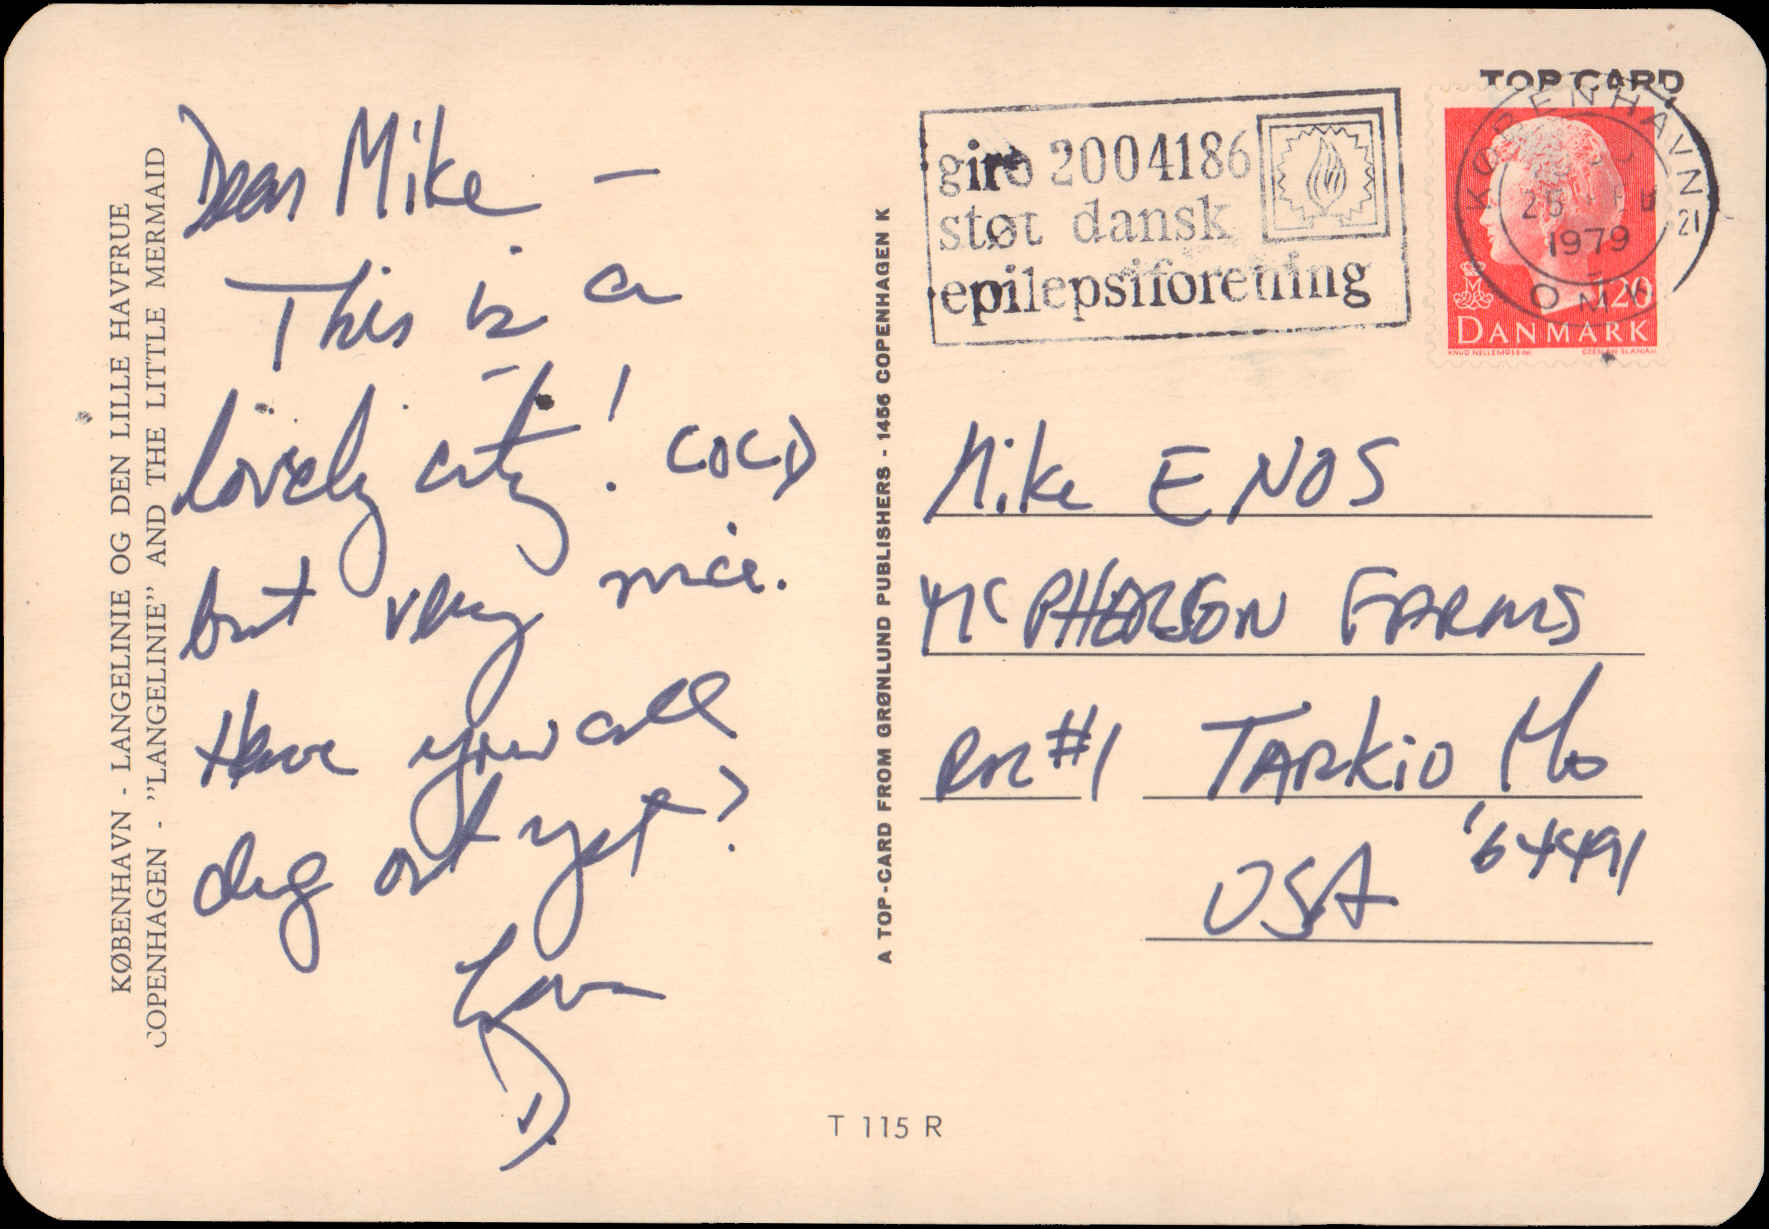 KØBENHAVN - LANGELINIE OG DEN LILLE HAVFRUE
COPENHAGEN - "LANGELINIE" AND THE LITTLE MERMAID
Dear Mike —
This is a
lovely city! COLD
but very nice.
Have you all
dug out yet?
Love
D.
A TOP-CARD FROM GRØNLUND PUBLISHERS - 1456 COPENHAGEN K
T 115 R
TOP CARD
giro 2004186
støt dansk
epilepsiforening
KØBENHAVN
25
1979
OMK
21
120
DANMARK
Mike ENOS
McPHERSON FARMS
RR #1 TARKiO Mo
64491
USA